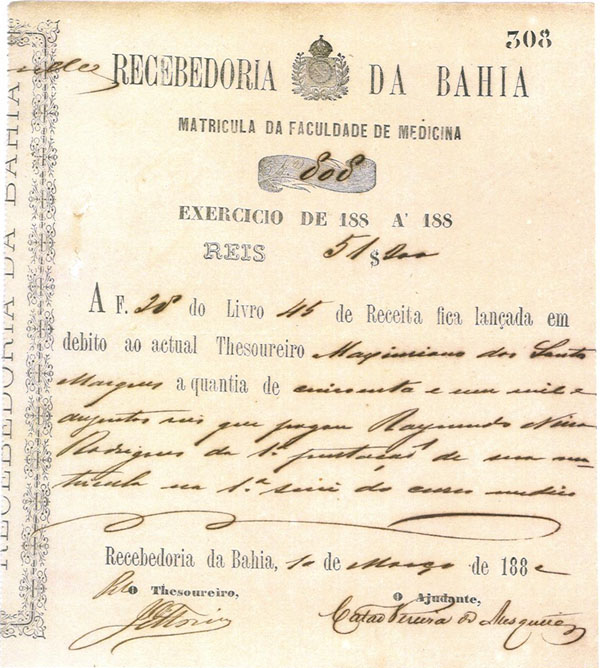 308
RECEBEDORIA DA BAHIA
MATRICULA DA FACULDADE DE MEDICINA
308
EXERCICIO DE 188 A' 188
REIS 51 $ 200
A F. 28 do Livro 45 de Receita fica lançada em
debito ao actual Thesoureiro Maximiano dos Santos
Marques a quantia de cincoenta e um mil e
duzentos reis que pagou Raymundo Nina
Rodrigues da 1ª prestação de sua ma-
tricula na 1ª serie do curso medico
Recebedoria da Bahia, 10 de Março de 1882
Pelo
O Thesoureiro,
O Ajudante,
Pereira de Mesquita
RECEBEDORIA DA BAHIA